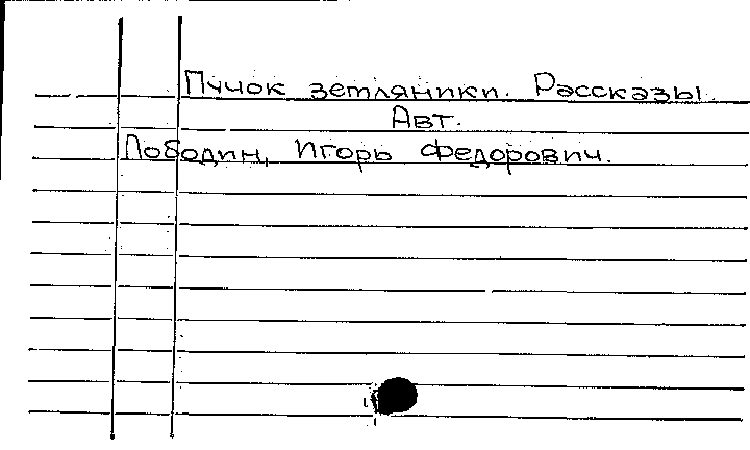 Пучок земляники. Рассказы.
Авт.
Лободин, Игорь Федорович.